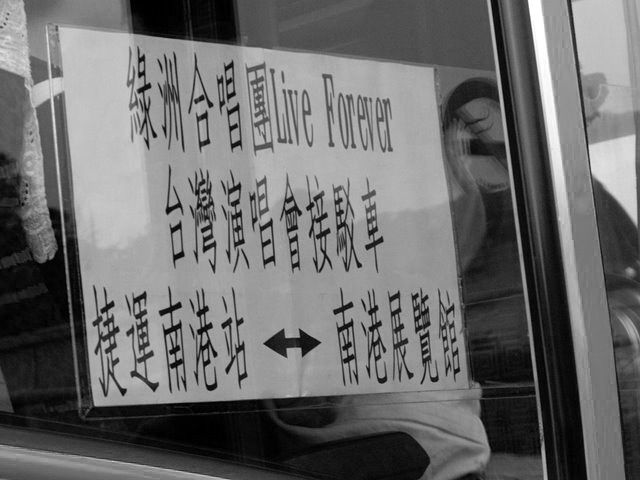 綠洲合唱團Live Forever
台灣演唱會接駁車
捷運南港站 ↔ 南港展覽館